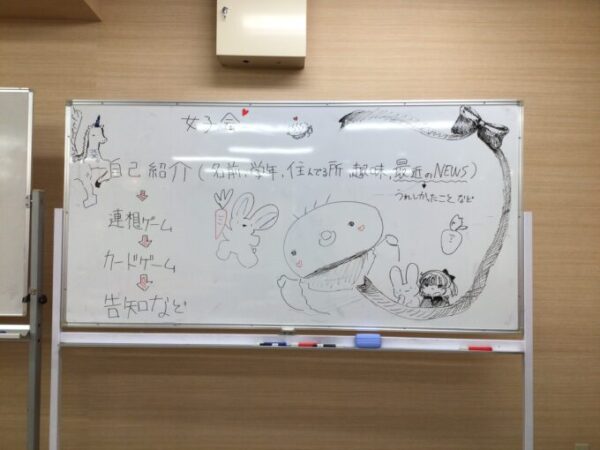 女子会
自己紹介(名前、学年、住んでる所、趣味、最近のNEWS)
うれしかったことなど
連想ゲーム
カードゲーム
告知など